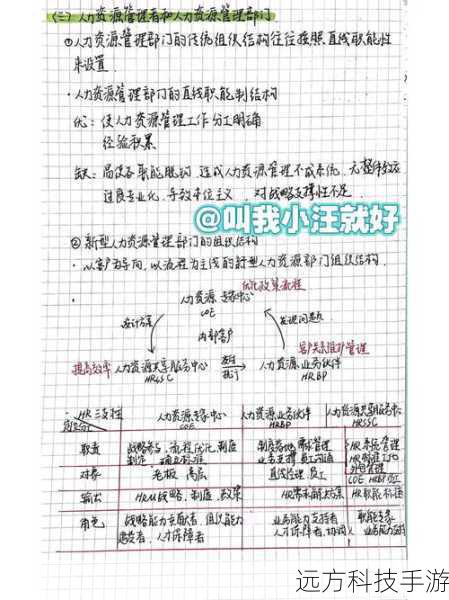 (三) 人力资源管理者和人力资源管理部门
①人力资源管理部门的传统组织结构往往按照直线职能性
来设置.
·人力资源管理部门的直线职能制结构
优: 使人力资源管理工作分工明确
经验积累
缺: 易使各职能脱钩, 造成人力资源管理不成系统, 无整体效应
过度专业化, 导致本位主义 对战略支撑性不足.
@叫我小汪就好
②新型人力资源管理部门的组织结构
·以客户为导向, 以流程为主线的新型人力资源部门组织结构.
优化政策流程
人力资源专家中心
COE
设计方案
发现问题点
内部客户
客户关系维护管理
提高效率 人力资源共享服务中心
HRSSC
人力资源业务伙伴
HRBP
HR三支柱
人力资源专家中心
COE
人力资源业务伙伴
HRBP
人力资源共享服务中心
HRSSC
职责
战略参与, 流程优化, 制度
业务支撑 员工沟通
HR系统管理
外包管理
对象
老板 高层
直线经理, 员工
COE HRBP 员工
输出
HRM战略, 制度, 政策
HR需求解决方案
HR职能标准
角色
战略能力贡献者, 组织能力
建设者, 人才保障者
业务能力支持者
人才保障者, 协调人
职能专家
业务能力支持
远方科技手游